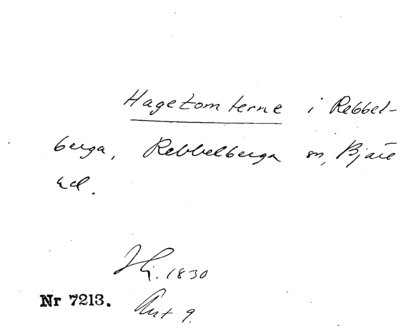 Hagetomterne i Rebbel-
berga, Rebbelberga sn, Bjäre
hd.
Hj. 1830
Nr 7213.
Ant 9.